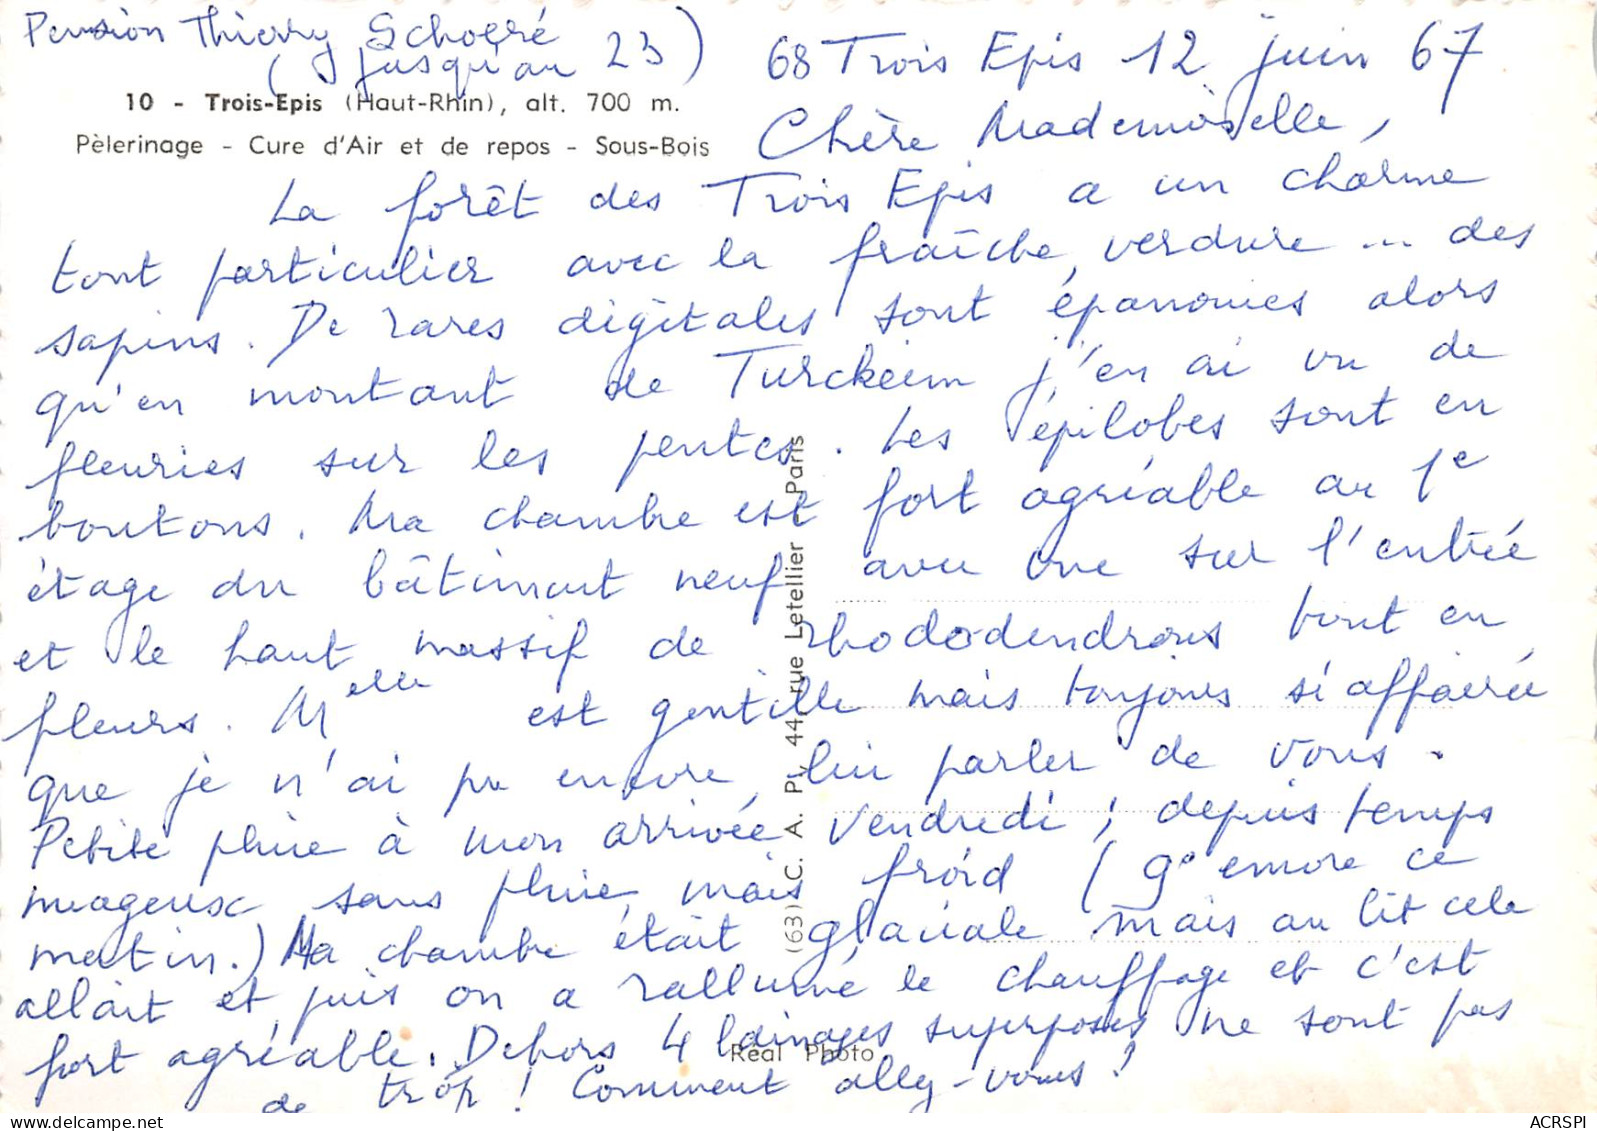 Pension Thierry Schoeré
(jusqu'au 23)
68 Trois Epis 12 juin 67
10 - Trois-Epis (Haut-Rhin), alt. 700 m.
Pèlerinage - Cure d'Air et de repos - Sous-Bois
Chère Mademoiselle,
La forêt des Trois Epis a un charme
tout particulier avec la fraîche verdure ... des
sapins. De rares digitales sont épanouies alors
qu'en montant de Turckeim j'en ai vu de
fleuries sur les pentes. Les épilobes sont en
boutons. Ma chambre est fort agréable au 1e
étage du bâtiment neuf avec vue sur l'entrée
et le haut massif de rhododendrons tout en
fleurs. Melle est gentille mais toujours si affairée
que je n'ai pu encore lui parler de vous.
Petite pluie à mon arrivée Vendredi ; depuis temps
nuageux sans pluie, mais froid (9° encore ce
matin.) Ma chambre était glaciale mais au lit cela
allait et puis on a rallumé le chauffage et c'est
fort agréable. Dehors 4 lainages superposés ne sont pas
de trop ! Comment allez-vous ?
(63) C. A. P., 44, rue Letellier Paris
Réal Photo
ACRSPI